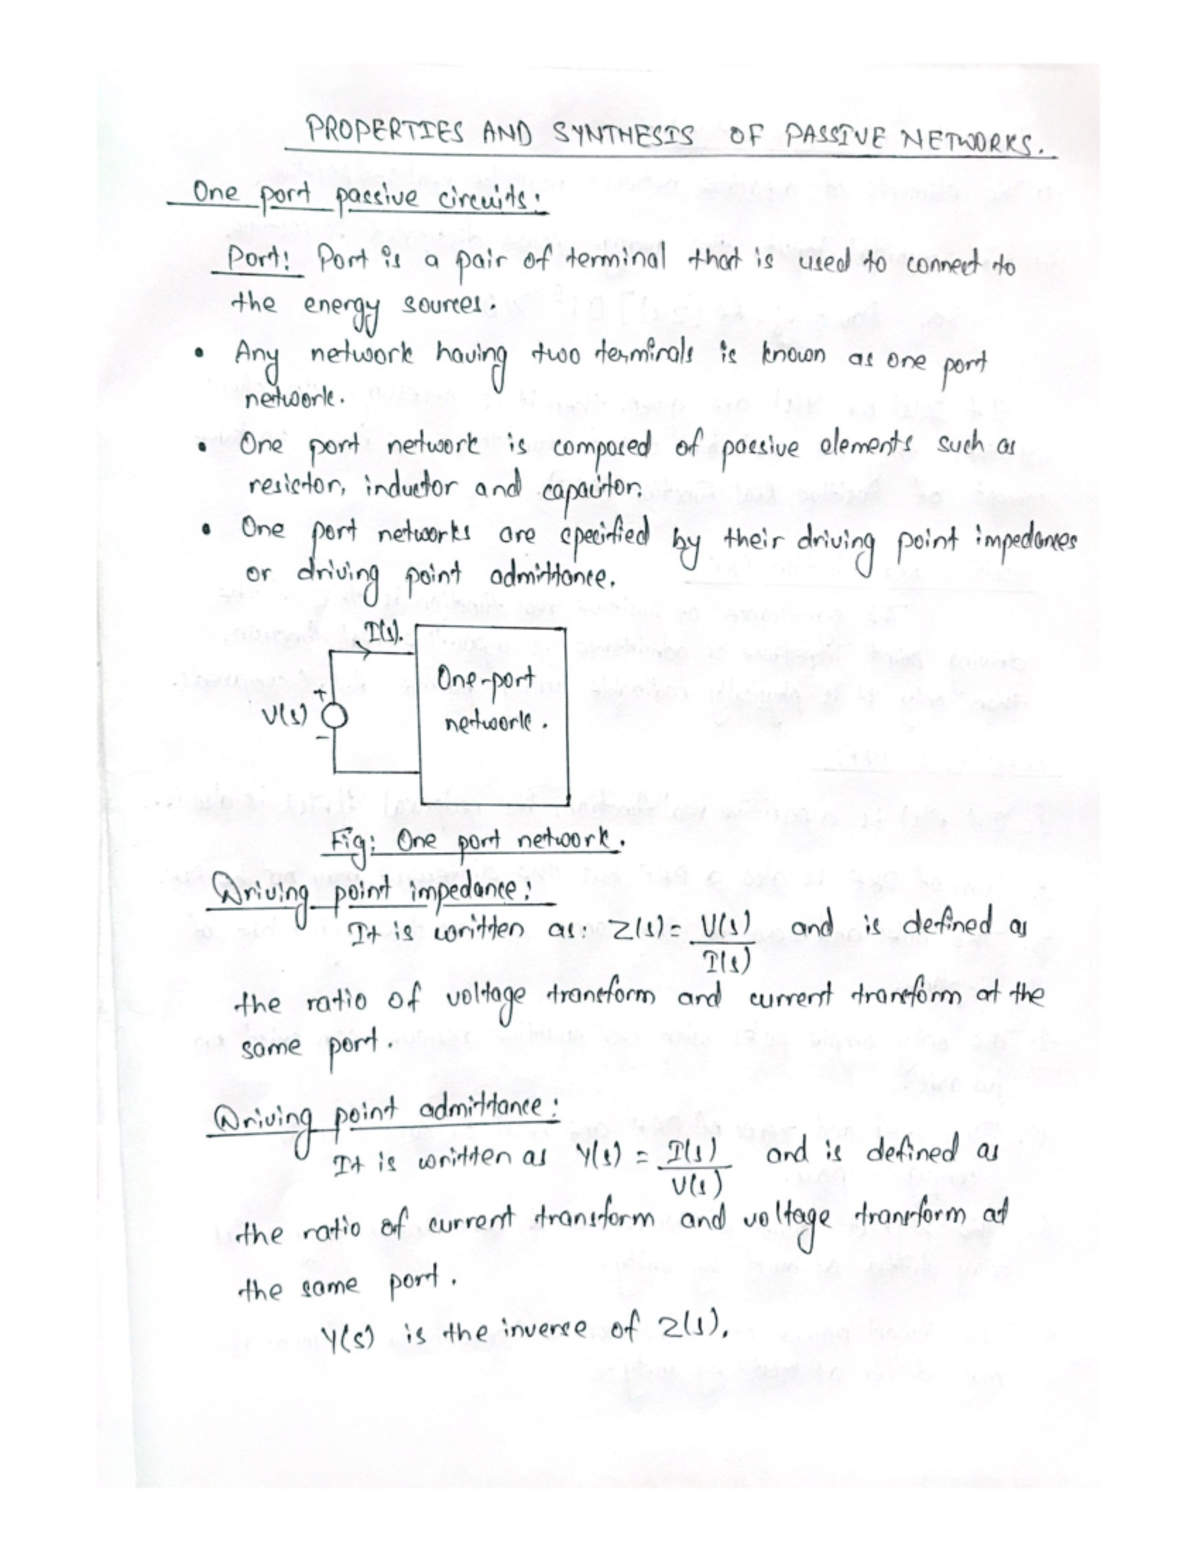 PROPERTIES AND SYNTHESIS OF PASSIVE NETWORKS.
One port passive circuits:
Port: Port is a pair of terminal that is used to connect to
the energy sources.
• Any network having two terminals is known as one port
network.
• One port network is composed of passive elements such as
resistor, inductor and capacitor.
• One port networks are specified by their driving point impedances
or driving point admittance.
I(s).
One-port
network.
+
V(s)
-
Fig: One port network.
Driving point impedance:
It is written as: Z(s) = V(s)/I(s) and is defined as
the ratio of voltage transform and current transform at the
same port.
Driving point admittance:
It is written as Y(s) = I(s)/V(s) and is defined as
the ratio of current transform and voltage transform at
the same port.
Y(s) is the inverse of Z(s).